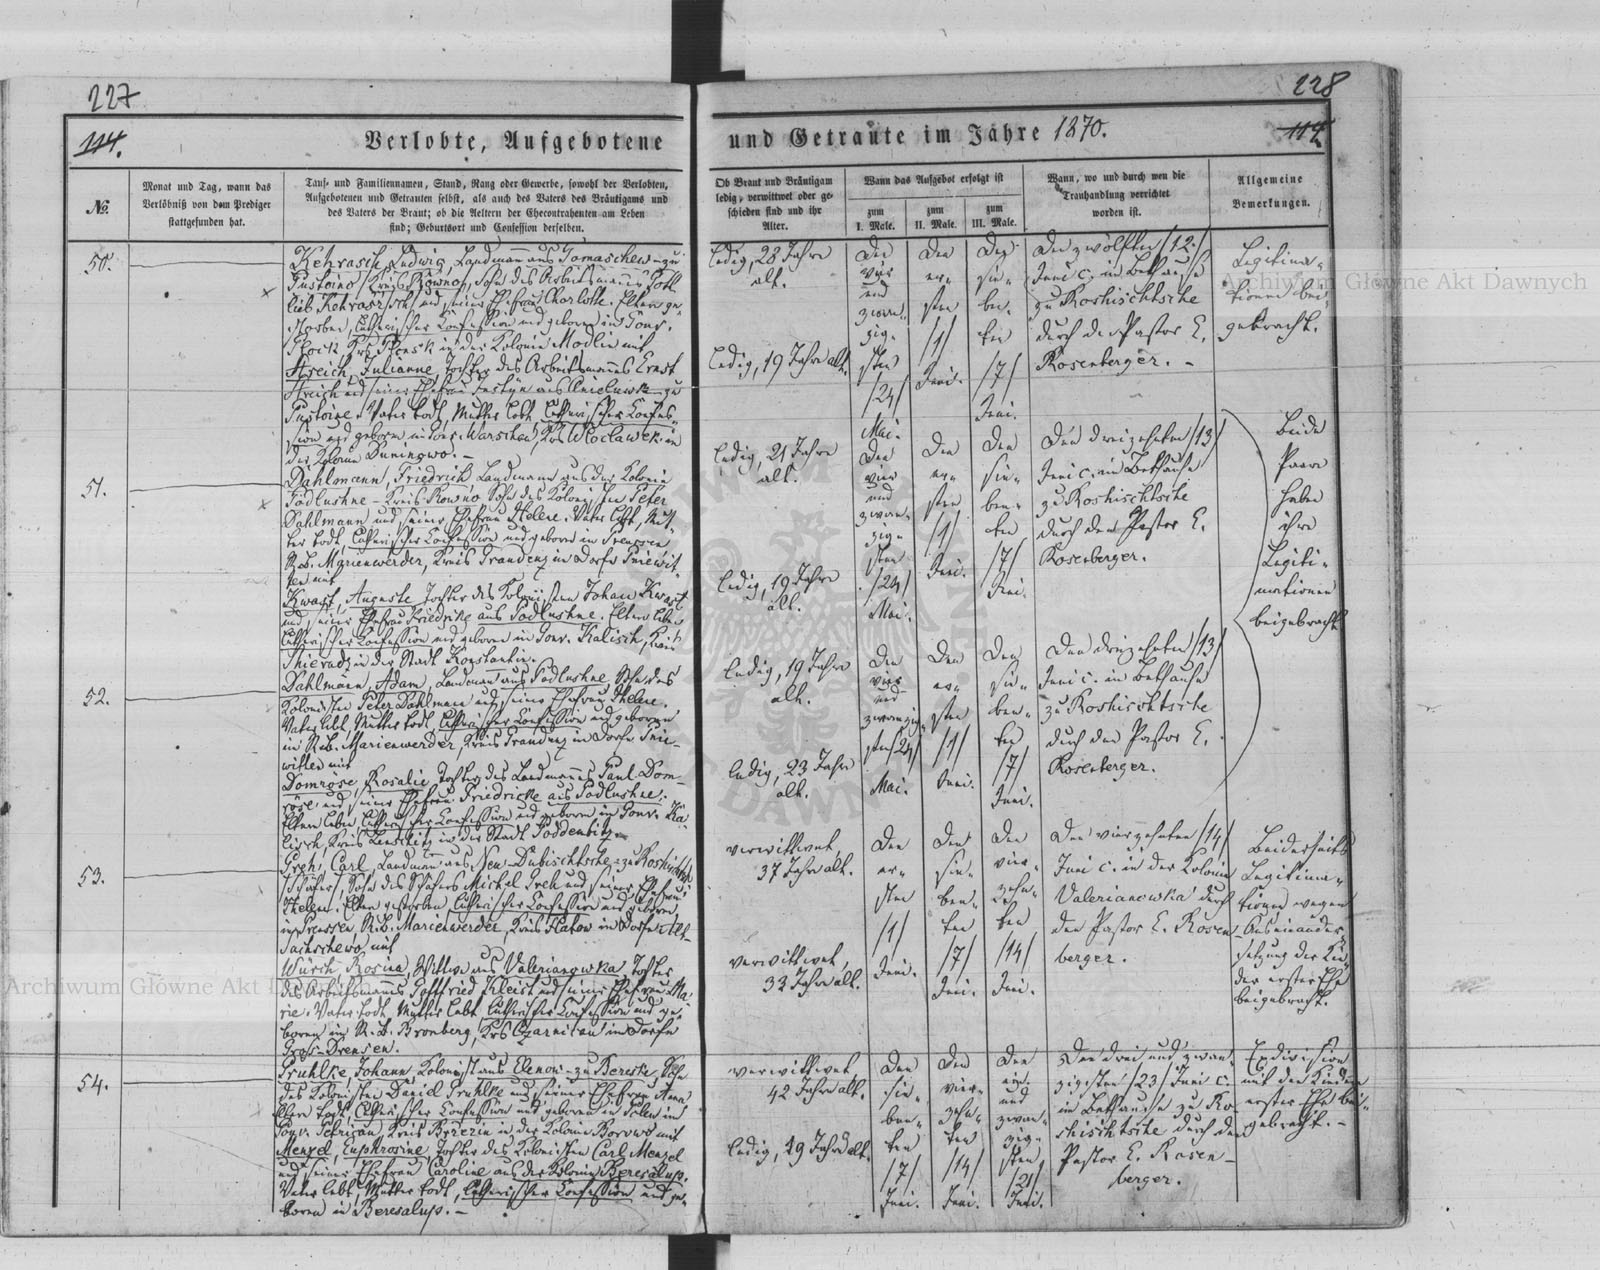 227
228
114.
Verlobte, Aufgebotene
und Getraute im Jahre 1870.
114
No.
Monat und Tag, wann das
Verlöbniß von dem Prediger
stattgefunden hat.
Tauf- und Familiennamen, Stand, Rang oder Gewerbe, sowohl der Verlobten,
Aufgebotenen und Getrauten selbst, als auch des Vaters des Bräutigams und
des Vaters der Braut; ob die Aeltern der Ehecontrahenten am Leben
sind; Geburtsort und Confession derselben.
Ob Braut und Bräutigam
ledig, verwittwet oder ge-
schieden sind und ihr
Alter.
Wann das Aufgebot erfolgt ist
zum
I. Male.
zum
II. Male.
zum
III. Male.
Wann, wo und durch wen die
Trauhandlung verrichtet
worden ist.
Allgemeine
Bemerkungen.
50.
Kehrasch, Ludwig, Landmann aus Tomaschew-zu
Pustoino, Kreis Rowno, Sohn des Arbeitsmannes Gott-
lieb Kehrasch und seiner Ehefrau Charlotte. Eltern ge-
storben, Lutherischer Confession und geboren in Gouv.
Plock Krs. Plonsk in der Kolonie Modlin mit
Streich, Julianne, Tochter des Arbeitsmannes Ernst
Streich und seiner Ehefrau aus Anieluwka-zu
Pustoine. Vater todt, Mutter lebt, Lutherischer Confes-
sion und geboren in Gouv. Warschau, Krs Wloclawek in
der Kolonie Duningwo.-
ledig, 28 Jahre
alt.
ledig, 19 Jahre alt.
Den
vier
und
zwan-
zig-
sten
/24/
Mai.
Den
er-
sten
/1/
Juni.
Den
sie-
ben-
ten
/7/
Juni.
Den zwölften /12./
Juni c. im Bethause
zu Roshischtsche
durch den Pastor E.
Rosenberger. -
Legitima-
tionen bei-
gebracht.
51.
Dahlmann, Friedrich, Landmann aus der Kolonie
Podlushne-Kreis Rowno Sohn des Kolonisten Peter
Dahlmann und seiner Ehefrau Helene. Vater lebt, Mut-
ter todt, Lutherischer Confession und geboren in Preussen
R.B. Marienwerder, Kreis Graudenz in Dorfe Priewit-
ten mit
Kwast, Auguste, Tochter des Kolonisten Johan Kwast
und seiner Ehefrau Friedrike aus Podlushne. Eltern leben
Lutherischer Confession und geboren in Gouv. Kalisch, Kreis
Schieradz in der Stadt Konstantin.
ledig, 21 Jahre
alt.
ledig, 19 Jahre
alt.
Den
vier
und
zwan-
zig-
sten
/24/
Mai.
Den
er-
sten
/1/
Juni.
Den
sie-
ben-
ten
/7/
Juni.
Den dreizehnten /13/
Juni c. im Bethause
zu Roshischtsche
durch den Pastor E.
Rosenberger.
Beide
Paare
haben
ihre
Legiti-
mationen
beigebracht
52.
Dahlmann, Adam, Landmann aus Podlushne, Sohn des
Kolonisten Peter Dahlmann und seiner Ehefrau Helene.
Vater lebt, Mutter todt, Lutherischer Confession und geboren
in R.B. Marienwerder, Kreis Graudenz in Dorfe Prie-
witten mit
Domröse, Rosalie, Tochter des Landmannes Paul Dom-
röse und seiner Ehefrau Friedricke aus Podlushne.
Eltern leben Lutherischer Confession und geboren in Gouv. Ka-
lisch, Kreis Lentschitz in der Stadt Poddembitz.
ledig, 19 Jahre
alt.
ledig, 23 Jahre
alt.
Den
vier
und
zwanzig-
sten /24/
Mai.
Den
er-
sten
/1/
Juni.
Den
sie-
ben-
ten
/7/
Juni.
Den dreizehnten /13/
Juni c. im Bethause
zu Roshischtsche
durch den Pastor E.
Rosenberger.
53.
Greh, Carl, Landmann aus Neu-Dubischtsche-zu Roshischtsche
/Schäfer/, Sohn des Schäfers Michel Greh und seiner Ehefrau
Helene. Eltern gestorben, Lutherischer Confession und geboren
in Preussen, R.B. Marienwerder, Kreis Flatow in Dorfe Alt-
mit
Würch, Rosina, Wittwe aus Valerianowka, Tochter
des Arbeitsmannes Gottfried Kleist und seiner Ehefrau Ma-
rie. Vater todt, Mutter lebt Lutherischer Confession und ge-
boren in R.B. Bromberg, Krs Czarnikau in Dorfe
Gross-Drensen.
verwittwet,
37 Jahre alt.
verwittwet,
32 Jahre alt.
Den
er-
sten
/1/
Juni.
Den
sie-
ben-
ten
/7/
Juni.
Den
vier-
zehn-
ten
/14/
Juni.
Den vierzehnten /14/
Juni c. in der Kolonie
Valerianowka durch
den Pastor E. Rosen-
berger.
Beiderseits
Legitima-
tionen wegen
Auseinander-
setzung der Kin-
der erster Ehe
beigebracht.
54.
Pruhlke, Johann Kolonist aus Elenow-zu Bereste, Sohn
des Kolonisten Daniel Pruhlke und seiner Ehefrau Anna
Eltern todt, Lutherischer Confession und geboren in Polen im
Gouv. Petrikau, Kreis Brzezin in der Kolonie Borowo mit
Menzel, Euphrosine, Tochter des Kolonisten Carl Menzel
und seiner Ehefrau Caroline aus der Kolonie Beresalup.
Vater lebt, Mutter todt, Lutherischer Confession und ge-
boren in Beresalup.-
verwittwet,
42 Jahre alt.
ledig, 19 Jahre alt.
Den
sie-
ben-
ten
/7/
Juni.
Den
vier-
zehn-
ten
/14/
Juni.
Den
ein-
und
zwan-
zig-
sten
/21/
Juni.
Den drei und zwan-
zigsten /23/ Juni c.
im Bethause zu Ro-
shischtsche durch den
Pastor E. Rosen-
berger.
Exdivision
mit den Kindern
erster Ehe bei-
gebracht.-
Archiwum Główne Akt Dawnych
Archiwum Główne Akt Dawnych